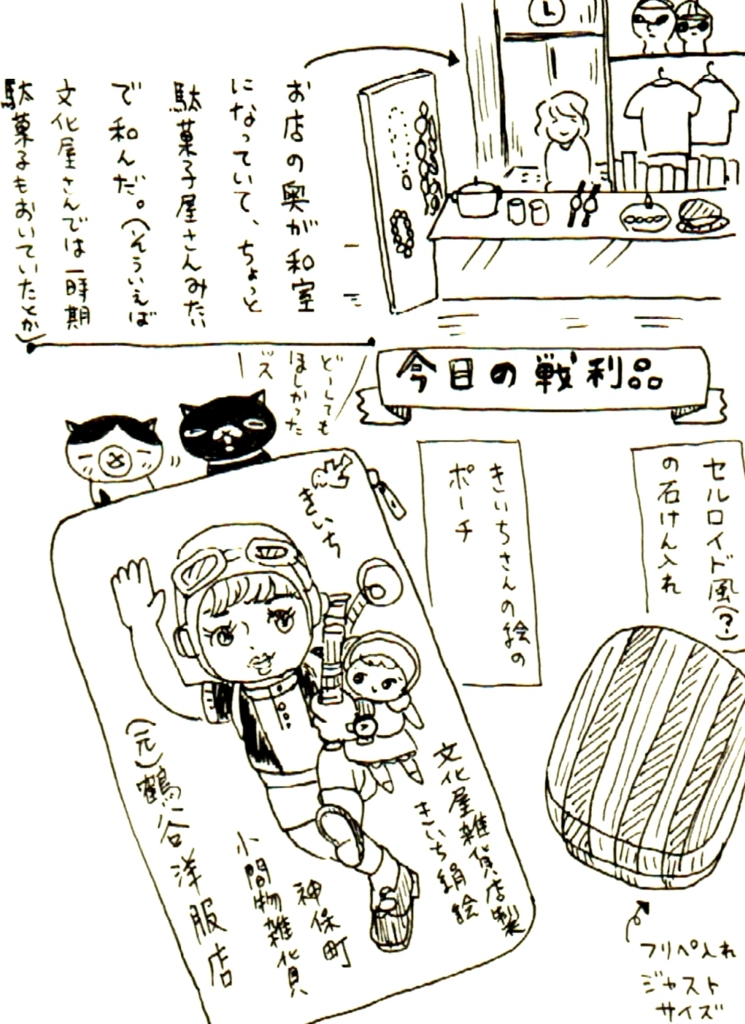 お店の奥が和室
になっていて、ちょっと
駄菓子屋さんみたい
で和んだ。(そういえば
文化屋さんでは一時期
駄菓子もおいていたとか)
今日の戦利品
どーしても
ほしかった
ッス
セルロイド風(?)
の石けん入れ
きいちさんの絵の
ポーチ
きいち
文化屋雑貨店製
きいち絹絵
神保町
小間物雑貨
(元)鶴谷洋服店
フリペ入れ
ジャスト
サイズ